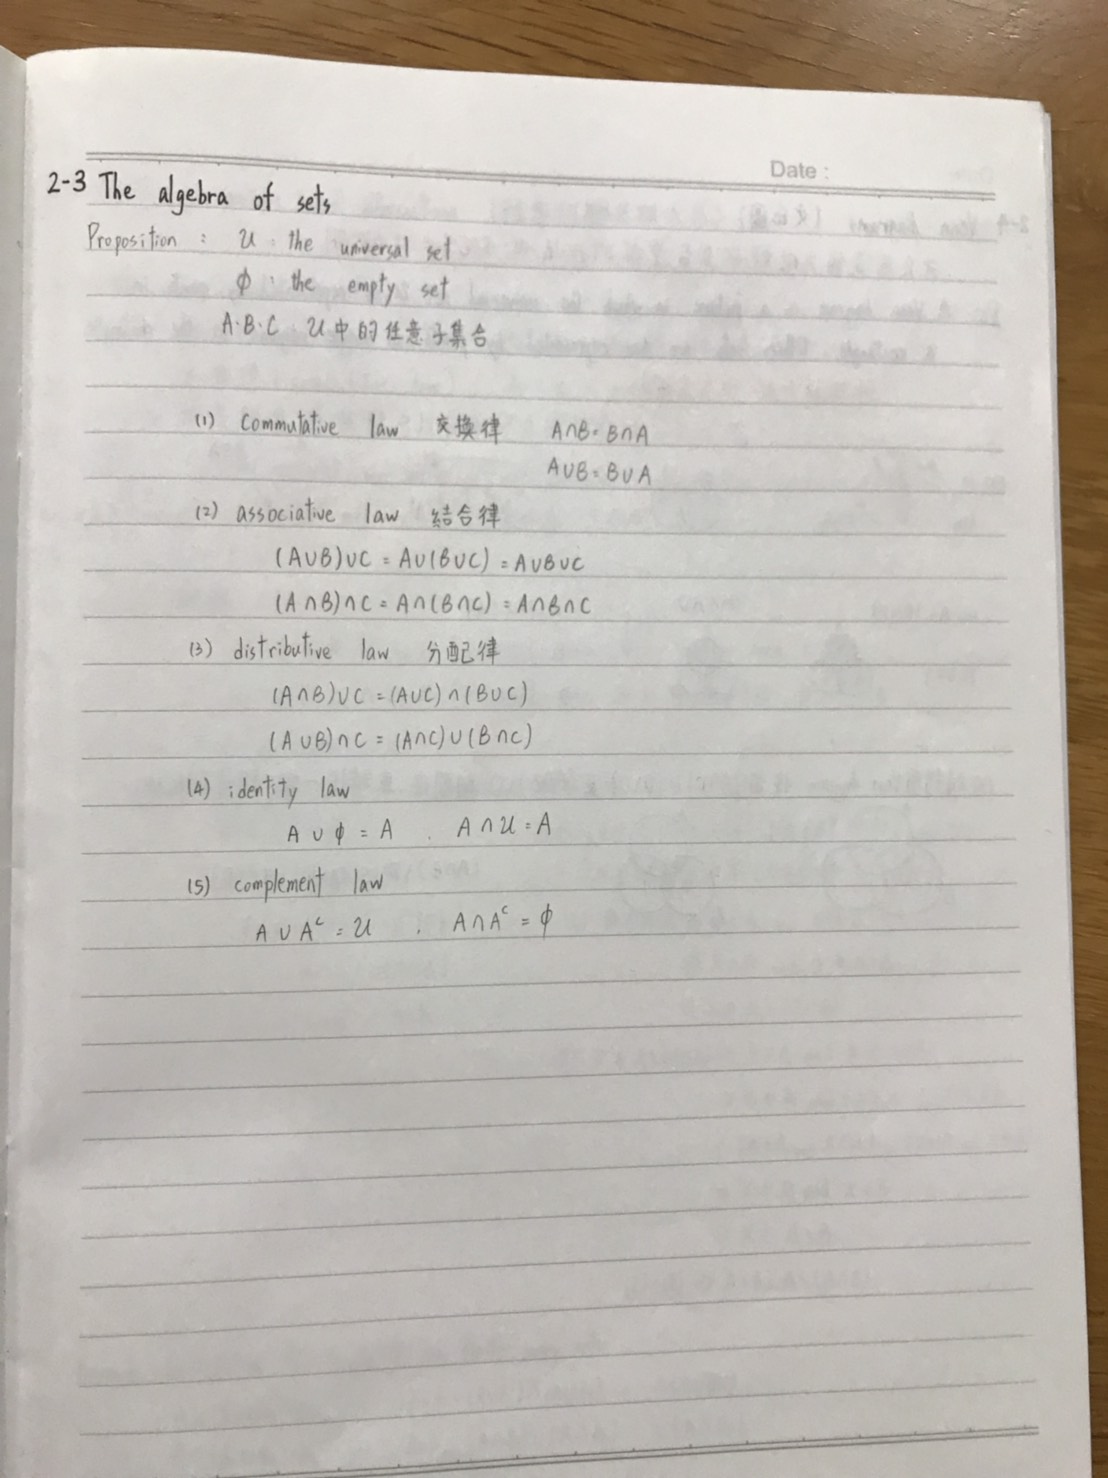 Date :
2-3 The algebra of sets
Proposition : U : the universal set
ϕ : the empty set
A.B.C : U中的任意子集合
(1) commutative law 交換律 A∩B = B∩A
A∪B = B∪A
(2) associative law 結合律
(A∪B)∪C = A∪(B∪C) = A∪B∪C
(A∩B)∩C = A∩(B∩C) = A∩B∩C
(3) distributive law 分配律
(A∩B)∪C = (A∪C)∩(B∪C)
(A∪B)∩C = (A∩C)∪(B∩C)
(4) identity law
A ∪ ϕ = A . A ∩ U = A
(5) complement law
A ∪ Aᶜ = U . A∩Aᶜ = ϕ